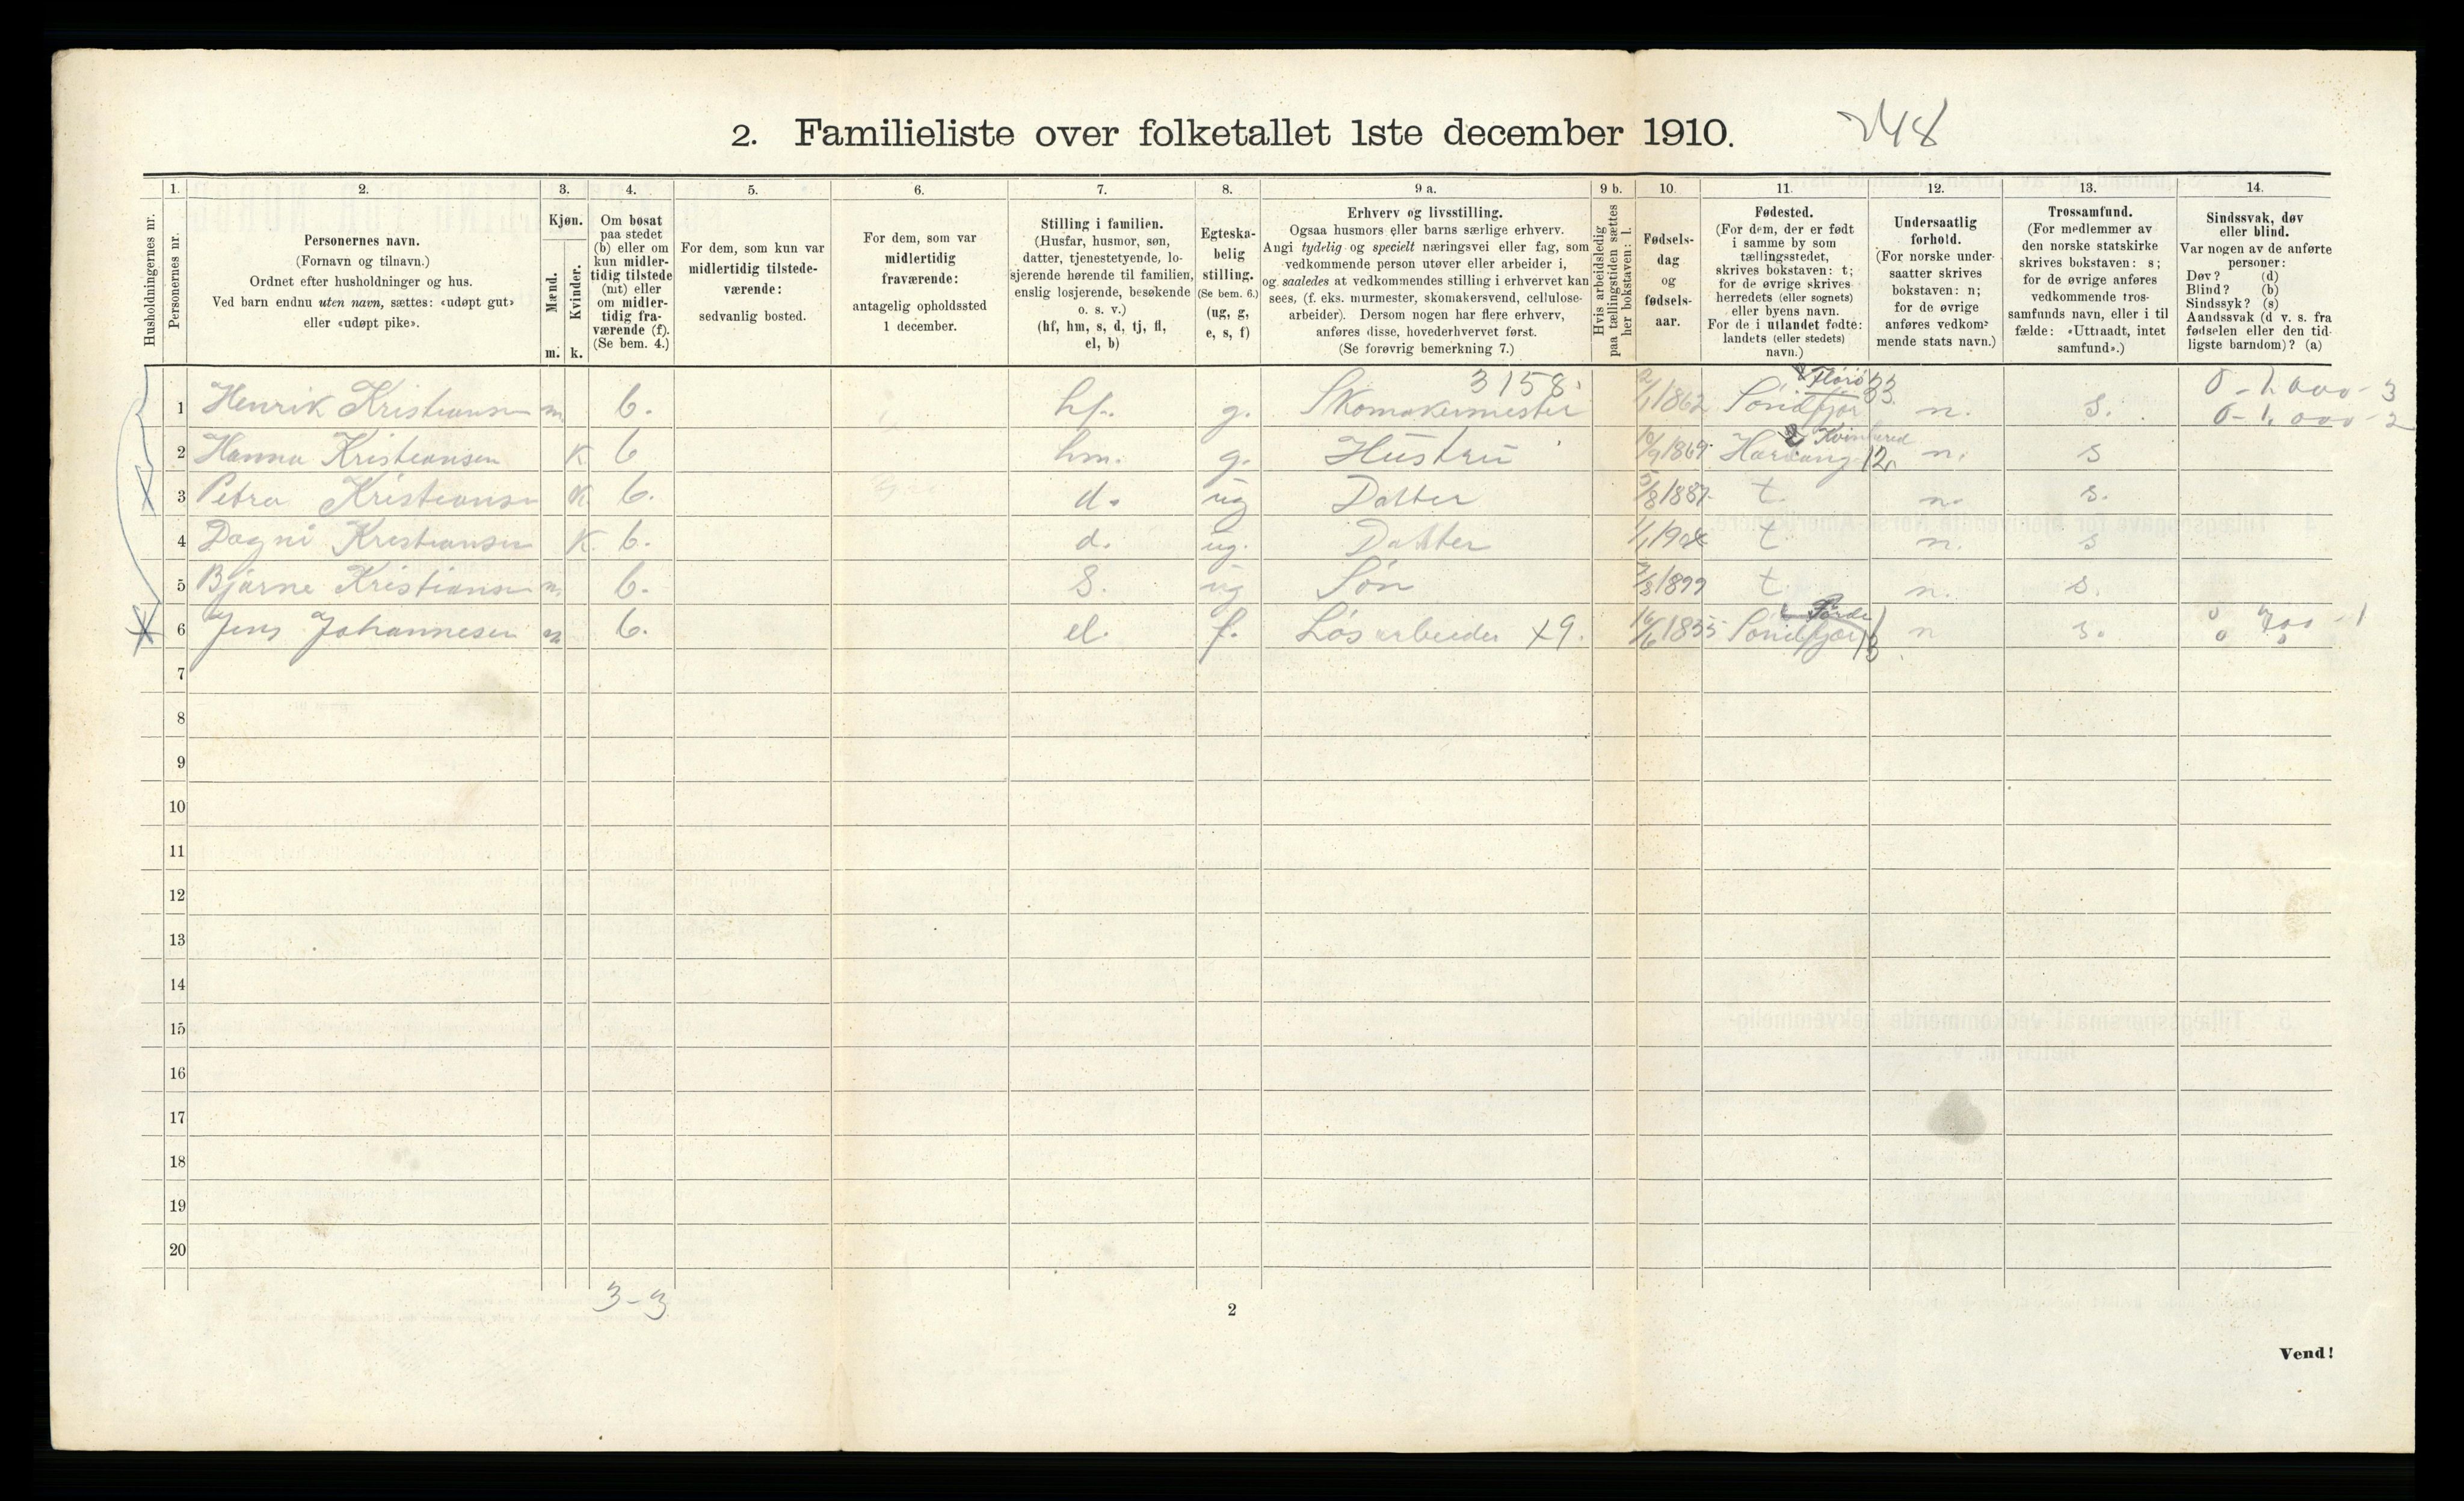 2. Familieliste over folketallet 1ste december 1910. 248
1. 2. 3. 4. 5. 6. 7. 8. 9 a. 9 b. 10. 11. 12. 13. 14.
Husholdningernes nr.
Personernes nr.
Personernes navn.
(Fornavn og tilnavn.)
Ordnet efter husholdninger og hus.
Ved barn endnu uten navn, sættes: «udøpt gut»
eller «udøpt pike».
Kjøn.
Mænd.
Kvinder.
m. k.
Om bosat
paa stedet
(b) eller om
kun midler-
tidig tilstede
(mt) eller
om midler-
tidig fra-
værende (f).
(Se bem. 4.)
For dem, som kun var
midlertidig tilstede-
værende:
sedvanlig bosted.
For dem, som var
midlertidig
fraværende:
antagelig opholdssted
1 december.
Stilling i familien.
(Husfar, husmor, søn,
datter, tjenestetyende, lo-
sjerende hørende til familien,
enslig losjerende, besøkende
o. s. v.)
(hf, hm, s, d, tj, fl,
el, b)
Egteska-
belig
stilling.
(Se bem. 6.)
(ug, g,
e, s, f)
Erhverv og livsstilling.
Ogsaa husmors eller barns særlige erhverv.
Angi tydelig og specielt næringsvei eller fag, som
vedkommende person utøver eller arbeider i,
og saaledes at vedkommendes stilling i erhvervet kan
sees, (f. eks. murmester, skomakersvend, cellulose-
arbeider). Dersom nogen har flere erhverv,
anføres disse, hovederhvervet først.
(Se forøvrig bemerkning 7.)
Hvis arbeidsledig
paa tællingstiden sættes
her bokstaven: l.
Fødsels-
dag
og
fødsels-
aar.
Fødested.
(For dem, der er født
i samme by som
tællingsstedet,
skrives bokstaven: t;
for de øvrige skrives
herredets (eller sognets)
eller byens navn.
For de i utlandet fødte:
landets (eller stedets)
navn.)
Undersaatlig
forhold.
(For norske under-
saatter skrives
bokstaven: n;
for de øvrige
anføres vedkom-
mende stats navn.)
Trossamfund.
(For medlemmer av
den norske statskirke
skrives bokstaven: s;
for de øvrige anføres
vedkommende tros-
samfunds navn, eller i til
fælde: «Uttraadt, intet
samfund».)
Sindssvak, døv
eller blind.
Var nogen av de anførte
personer:
Døv? (d)
Blind? (b)
Sindssyk? (s)
Aandssvak (d v. s. fra
fødselen eller den tid-
ligste barndom)? (a)
3158. Florø 33 0 - 1,000 - 3
1 Henrik Kristiansen m b. hf. g. Skomakermester 2/1 1862 Søndfjor n. s. 0 - 1,000 - 2
Kvinhered
2 Hanna Kristiansen K b hm. g. Hustru 1869 Hardang 12 n. s
3 Petra Kristiansen K b. d. ug Datter 5/8 1887 t. n. s.
4 Dagni Kristiansen K. b. d. ug. Datter 1/1 190 t n. s
5 Bjarne Kristiansen m. b. s. ug Søn 1899 t. n. s.
Førde
6 Jens Johannesen m b. el. f. Løsarbeider x9. 16/6 1855 Søndfjor 13 n s. 0 700 - 1
0 0
7
8
9
10
11
12
13
14
15
16
17
18
19
20
3-3
2
Vend!